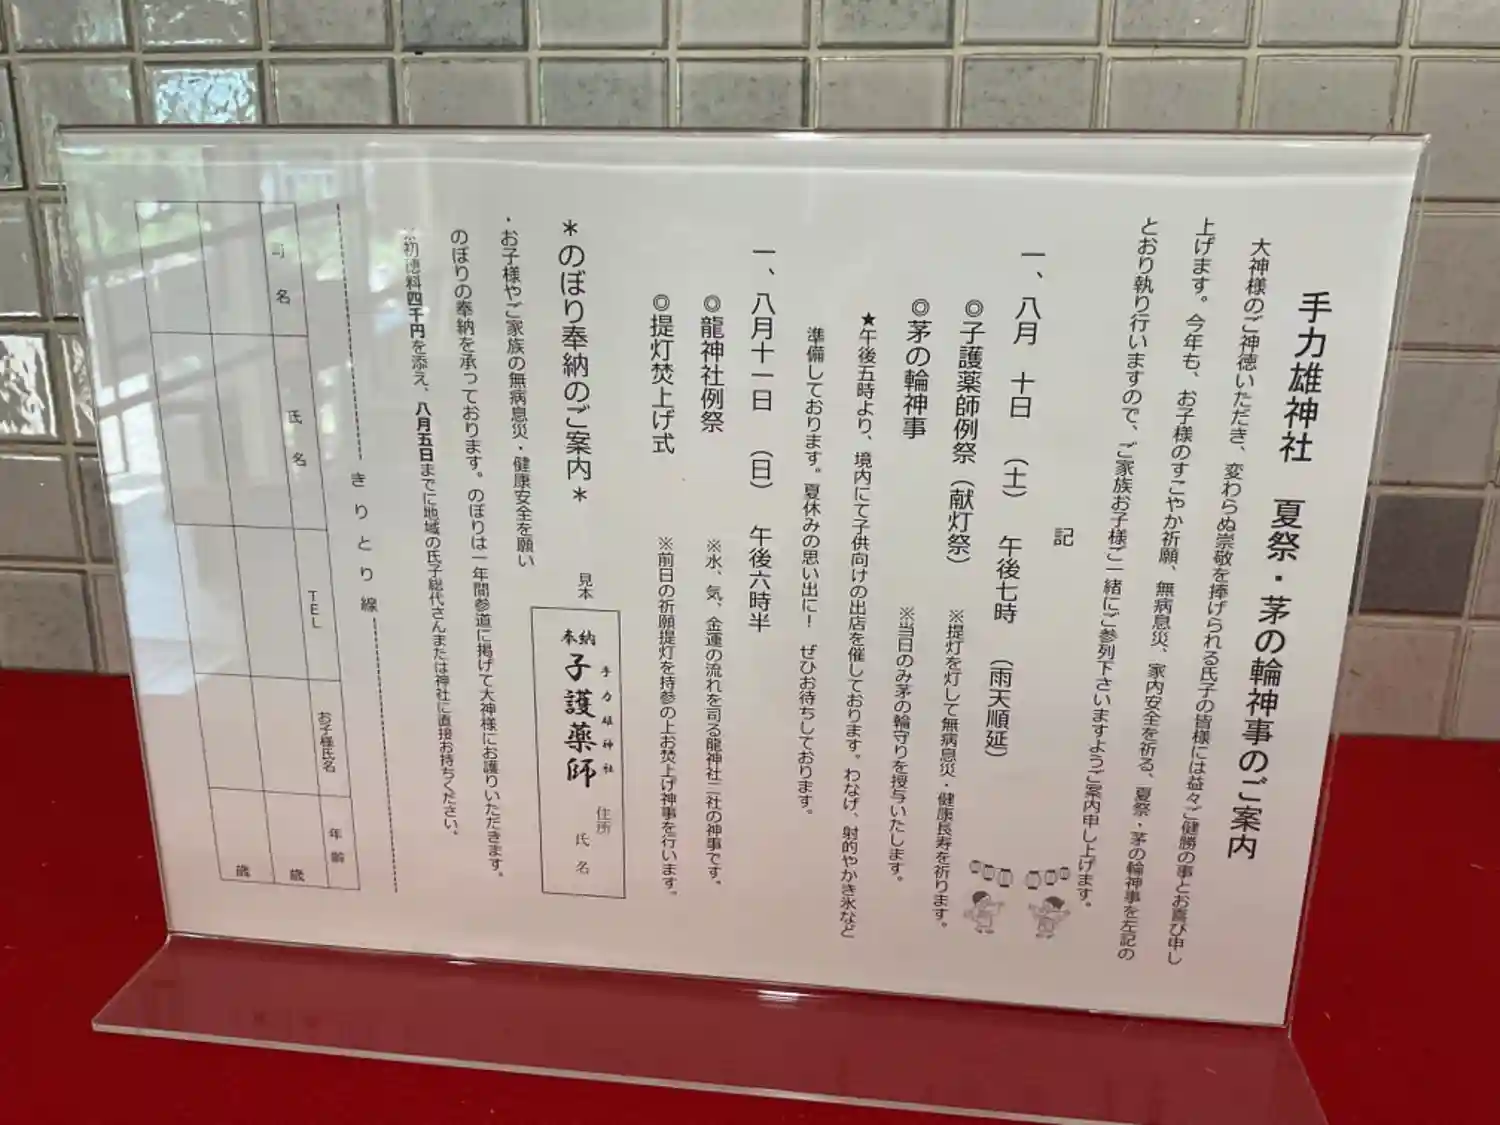 手力雄神社　夏祭・茅の輪神事のご案内
大神様のご神徳いただき、変わらぬ崇敬を捧げられる氏子の皆様には益々ご健勝の事とお喜び申し
上げます。今年も、お子様のすこやか祈願、無病息災、家内安全を祈る、夏祭・茅の輪神事を左記の
とおり執り行いますので、ご家族お子様ご一緒にご参列下さいますようご案内申し上げます。
記
一、八月　十日　（土）　午後七時　（雨天順延）
◎子護薬師例祭（献灯祭）　※提灯を灯して無病息災・健康長寿を祈ります。
◎茅の輪神事　※当日のみ茅の輪守りを授与いたします。
★午後五時より、境内にて子供向けの出店を催しております。わなげ、射的やかき氷など
準備しております。夏休みの思い出に！　ぜひお待ちしております。
一、八月十一日　（日）　午後六時半
◎龍神社例祭　※水、気、金運の流れを司る龍神社二社の神事です。
◎提灯焚上げ式　※前日の祈願提灯を持参の上お焚上げ神事を行います。
＊のぼり奉納のご案内＊
見本
手力雄神社
奉納 子護薬師
住所
氏名
・お子様やご家族の無病息災・健康安全を願い
のぼりの奉納を承っております。のぼりは一年間参道に掲げて大神様にお護りいただきます。
※初穂料四千円を添え、八月五日までに地域の氏子総代さんまたは神社に直接お持ちください。
きりとり線
町名
氏名
TEL
お子様氏名
年齢
歳
歳